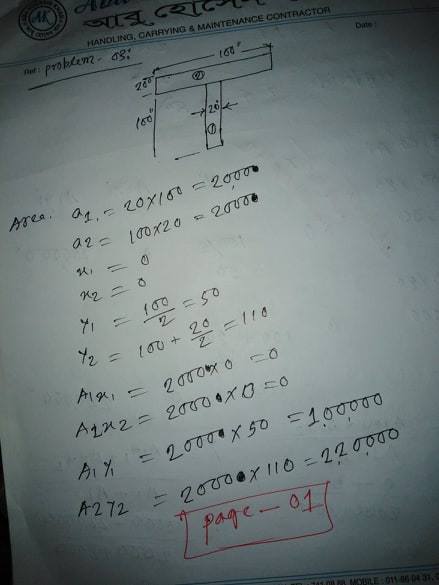 আবু হোসেন
HANDLING, CARRYING & MAINTENANCE CONTRACTOR
Ref: problem - 03:
Date :
100"
20"
②
100"
20"
①
Area. a1 = 20×100 = 2000
a2 = 100×20 = 2000
x1 = 0
x2 = 0
Y1 = 100/2 = 50
Y2 = 100 + 20/2 = 110
A1x1 = 2000×0 = 0
A2x2 = 2000×0 = 0
A1Y1 = 2000×50 = 100000
A2Y2 = 2000×110 = 220000
page - 01
MOBILE : 011-96-04